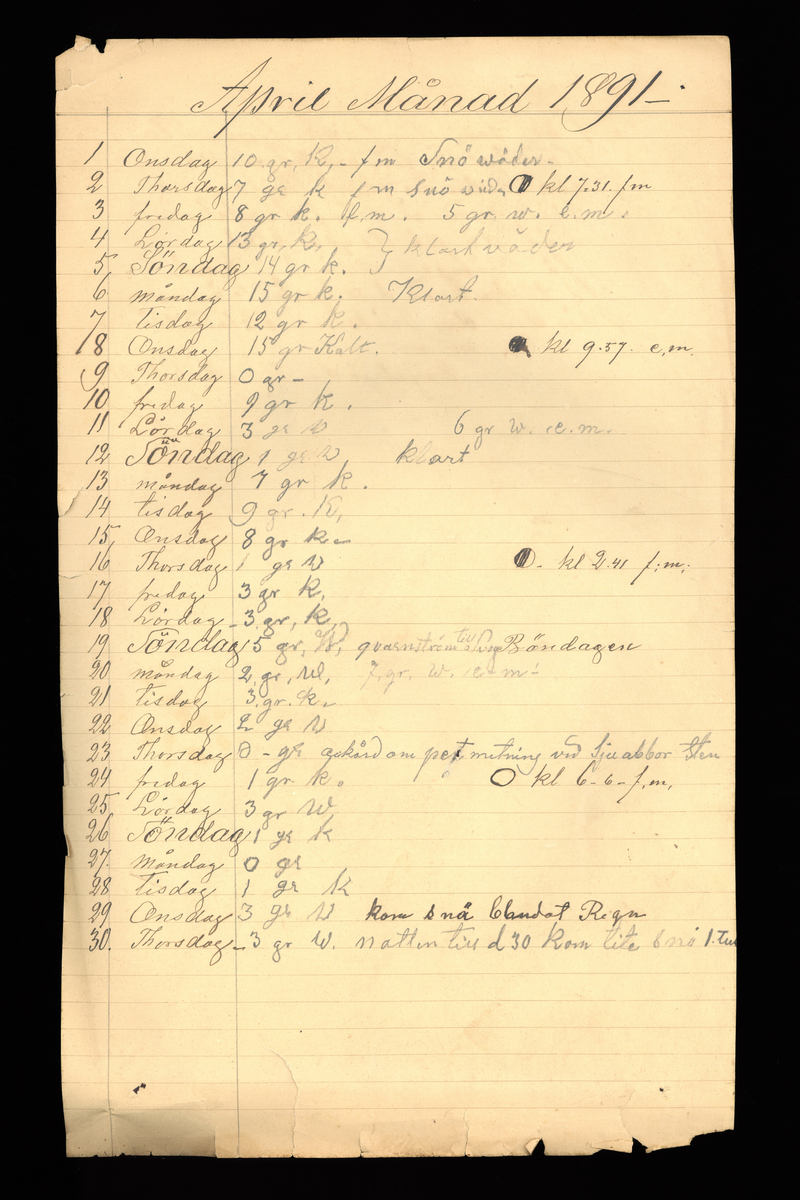 April Månad 1891 -
1 Onsdag 10 gr, K, - fm Snö wäder -
2 Thorsdag 7 gr k fm Snö wäder kl 7.31. fm
3 fredag 8 gr k. f.m. 5 gr. w. e.m.
4 Lördag 13 gr, K, } klart väder
5 Söndag 14 gr k.
6 måndag 15 gr k. Klart.
7 tisdag 12 gr k.
8 Onsdag 15 gr Kalt. kl 9.57. e,m.
9 Thorsdag 0 gr -
10 fredag 9 gr k.
11 Lördag 3 gr w 6 gr w. e.m.
12 Söndag 1 gr w klart
13 måndag 7 gr k.
14 tisdag 9 gr. K,
15 Onsdag 8 gr k.
16 Thorsdag 1 gr w - kl 2.41 f:m:
17 fredag 3 gr k,
18 Lördag - 3 gr, k,
19 Söndag 5 gr, W, quarnström till Böndagen
20 måndag 2 gr, W, 7, gr. w. e-m -
21 tisdag 3, gr. k.
22 Onsdag 2 gr w
23 Thorsdag 0 - gr ackård om metning vid
24 fredag 1 gr k. kl 6-6- f,m,
25 Lördag 3 gr W,
26 Söndag 1 gr k
27 måndag 0 gr
28 tisdag 1 gr K
29 Onsdag 3 gr w kom snö blandat Regn
30. Thorsdag - 3 gr W. natten till d 30 kom lite snö 1.